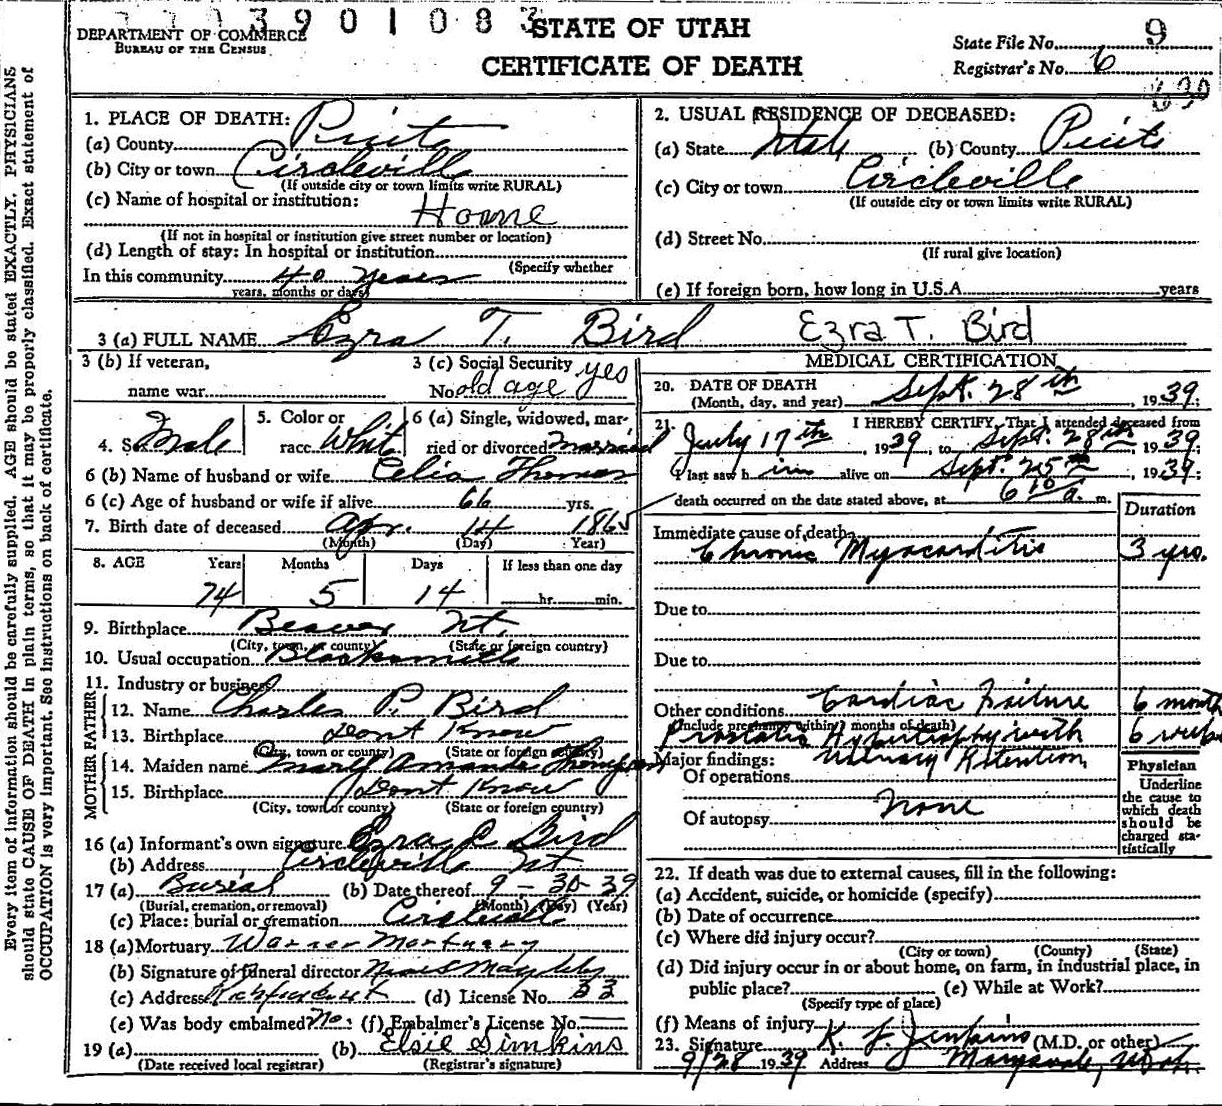 3901083
DEPARTMENT OF COMMERCE
BUREAU OF THE CENSUS
STATE OF UTAH
CERTIFICATE OF DEATH
State File No. 9
Registrar's No. 6
630
Every item of information should be carefully supplied. AGE should be stated EXACTLY. PHYSICIANS
should state CAUSE OF DEATH in plain terms, so that it may be properly classified. Exact statement of
OCCUPATION is very important. See instructions on back of certificate.
1. PLACE OF DEATH:
(a) County Piute
(b) City or town Circleville
(If outside city or town limits write RURAL)
(c) Name of hospital or institution:
Home
(If not in hospital or institution give street number or location)
(d) Length of stay: In hospital or institution
(Specify whether
In this community 40 years
years, months or days)
2. USUAL RESIDENCE OF DECEASED:
(a) State Utah (b) County Piute
(c) City or town Circleville
(If outside city or town limits write RURAL)
(d) Street No.
(If rural give location)
(e) If foreign born, how long in U.S.A. years
3 (a) FULL NAME Ezra T. Bird Ezra T. Bird
3 (b) If veteran,
name war
3 (c) Social Security yes
No old age
4. Sex Male
5. Color or
race White
6 (a) Single, widowed, mar-
ried or divorced married
6 (b) Name of husband or wife Celia Thomas
6 (c) Age of husband or wife if alive 66 yrs.
7. Birth date of deceased Apr. 14 1865
(Month) (Day) Year)
8. AGE Years Months Days If less than one day
74 5 14 hr. min.
9. Birthplace Beaver Ut.
(City, town, or county) (State or foreign country)
10. Usual occupation Blacksmith
11. Industry or business
FATHER
12. Name Charles P. Bird
13. Birthplace Dont Know
(City, town or county) (State or foreign country)
MOTHER
14. Maiden name Mary Amanda Thompson
15. Birthplace Dont Know
(City, town or county) (State or foreign country)
16 (a) Informant's own signature Ezra Bird
(b) Address Circleville Ut
17 (a) Burial (b) Date thereof 9-30-39
(Burial, cremation, or removal) (Month) (Day) (Year)
(c) Place: burial or cremation Circleville
18 (a) Mortuary Warner Mortuary
(b) Signature of funeral director
(c) Address (d) License No. 33
(e) Was body embalmed? No. (f) Embalmer's License No.
19 (a) (b) Elsie Simkins
(Date received local registrar) (Registrar's signature)
MEDICAL CERTIFICATION
20. DATE OF DEATH
(Month, day, and year) Sept. 28th, 1939;
21. I HEREBY CERTIFY, That I attended deceased from
July 17th, 1939, to Sept. 28th, 1939
I last saw him alive on Sept. 25th, 1939;
death occurred on the date stated above, at 6 10/a. m.
Duration
Immediate cause of death
Chronic Myocarditis 3 yrs.
Due to
Due to
Other conditions Cardiac Failure 6 months
(Include pregnancy within 3 months of death)
Prostatic Hypertrophy with 6 weeks
Urinary Retention
Major findings:
Of operations
Of autopsy none
Physician
Underline
the cause to
which death
should be
charged sta-
tistically
22. If death was due to external causes, fill in the following:
(a) Accident, suicide, or homicide (specify)
(b) Date of occurrence
(c) Where did injury occur?
(City or town) (County) (State)
(d) Did injury occur in or about home, on farm, in industrial place, in
public place? (e) While at Work?
(Specify type of place)
(f) Means of injury
23. Signature K. F. Jenkins (M.D. or other)
9/28 1939 Address Marysvale, Utah.